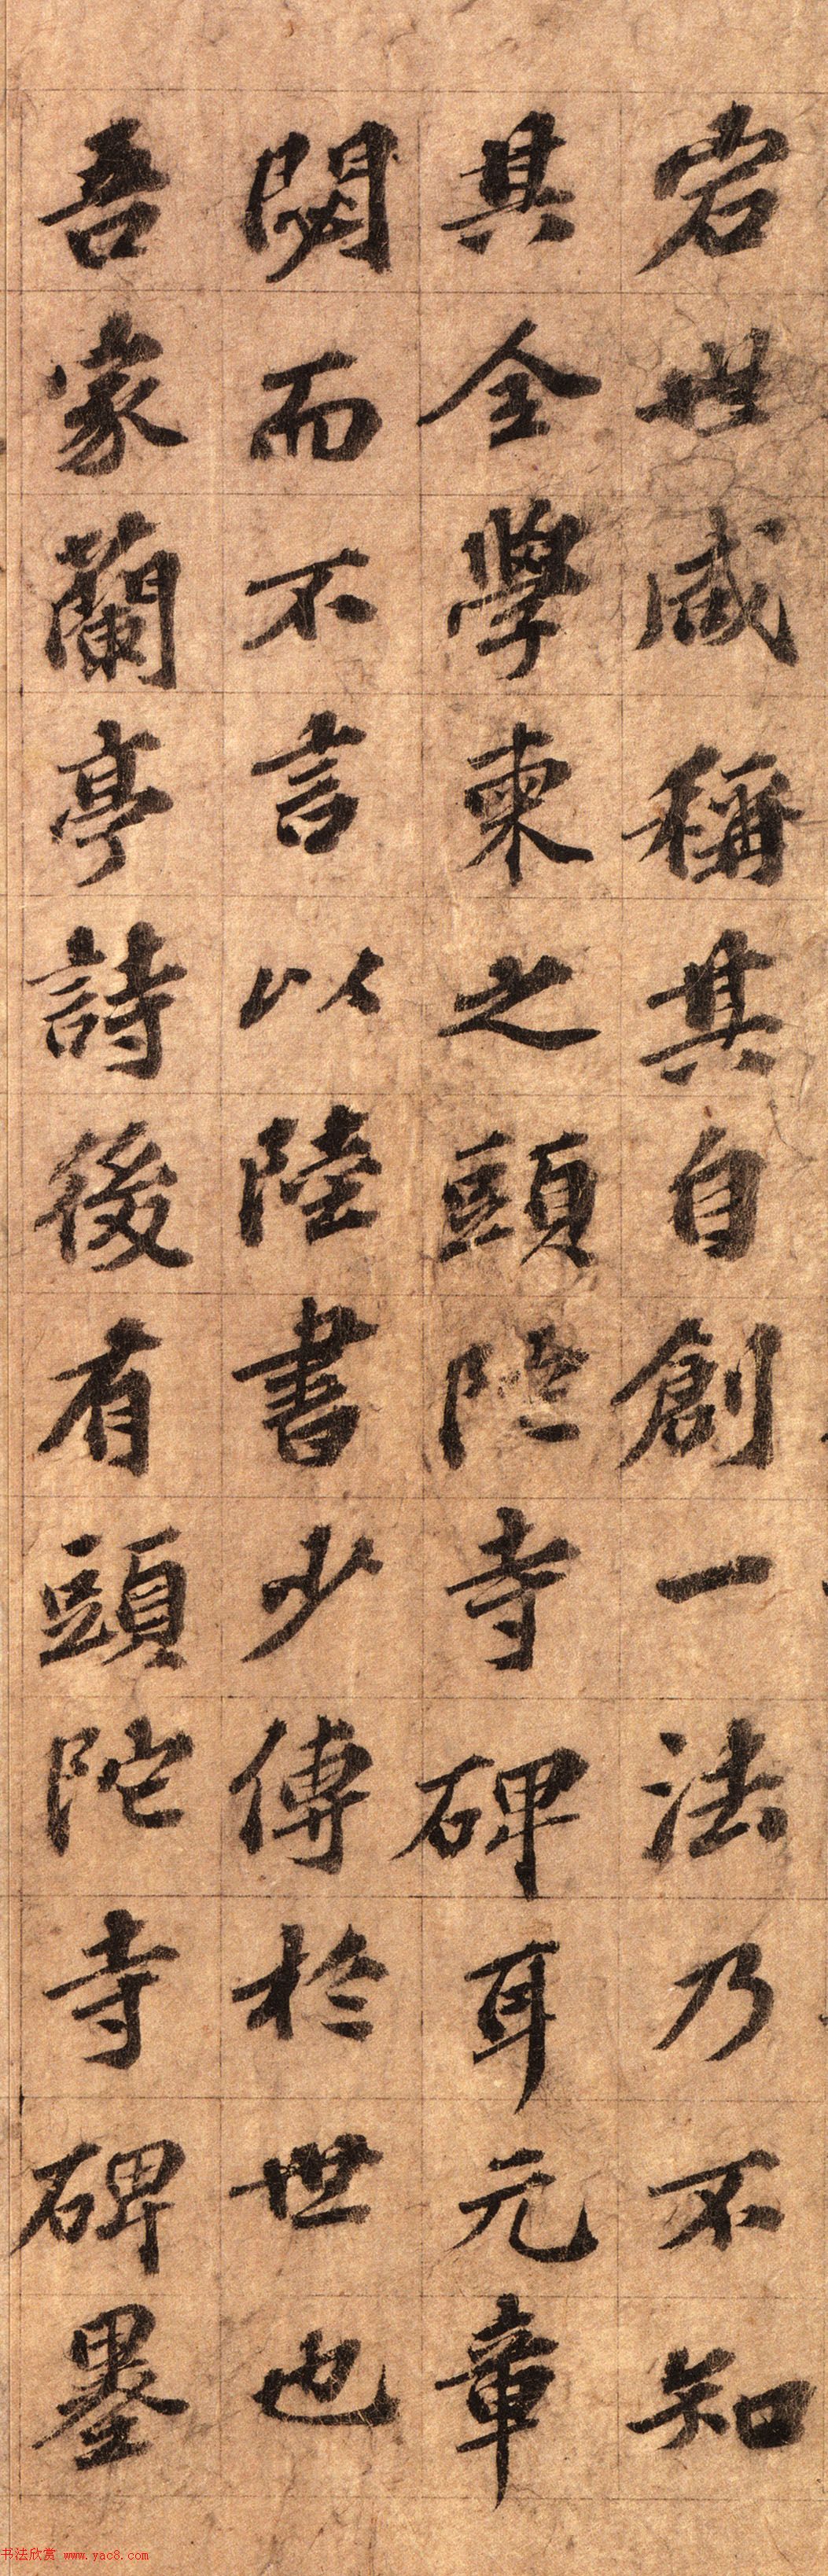 宕世咸稱其自創一法乃不知
其全學柬之頭陁寺碑耳元章
閟而不言以陸書少傳於世也
吾家蘭亭詩後有頭陀寺碑墨
书法欣赏 www.yac8.com